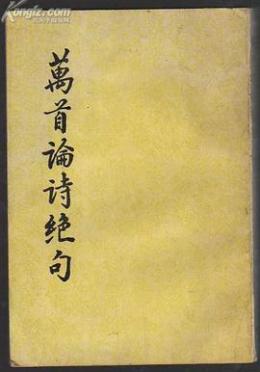 Kongfz.com
萬首論詩絕句